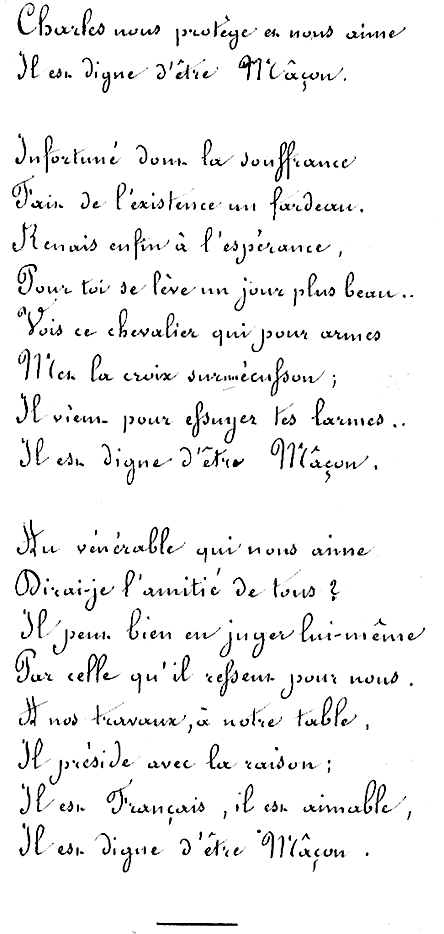 Charles nous protège et nous aime
Il est digne d'être Mâçon.
Infortuné dont la souffrance
Fait de l'existence un fardeau.
Renais enfin à l'espérance,
Pour toi se lève un jour plus beau..
Vois ce chevalier qui pour armes
Met la croix sur un écusson ;
Il vient pour essuyer tes larmes..
Il est digne d'être Mâçon.
Au vénérable qui nous aime
Dirai-je l'amitié de tous ?
Il peut bien en juger lui-même
Par celle qu'il ressent pour nous.
A nos travaux, à notre table,
Il préside avec la raison ;
Il est Français, il est aimable,
Il est digne d'être Mâçon.